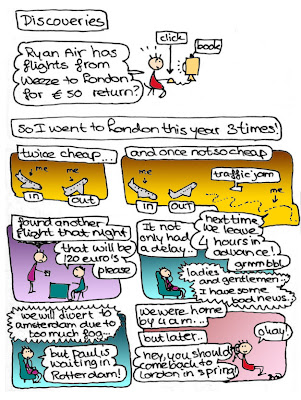 Discoveries
Ryan Air has
flights from
Weeze to London
for € 50 return?
click
book
So I went to London this year 3 times!
twice cheap...
and once not so cheap
me
me
in
out
me
me
in
out
traffic jam
found another
flight that night
that will be
120 euro's
please
It not
only had
a delay...
next time
we leave
4 hours in
advance!
grmmbbl
we will divert to
amsterdam due to
too much fog...
but Paul is
waiting in
Rotterdam!
ladies
and gentlemen
I have some
bad news
we were home
by 4 a.m....
but later..
hey, you should
come back to
london in spring!
okay!